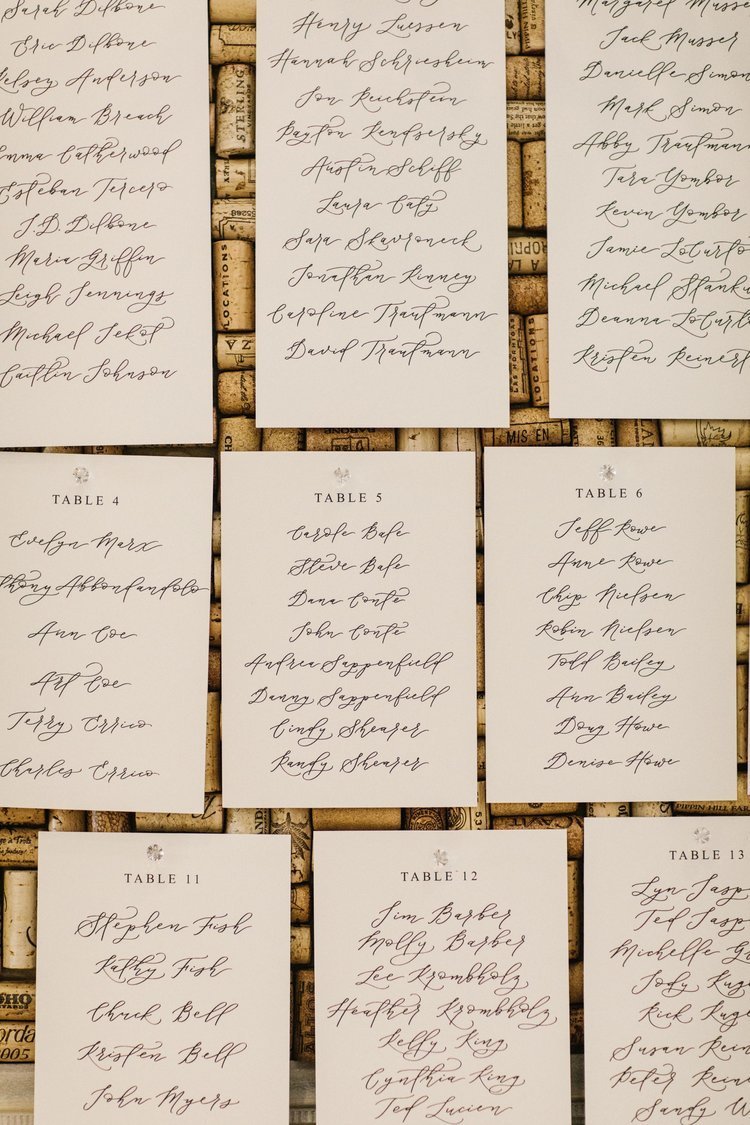 Sarah Dilbone
Eric Dilbone
Kelsey Anderson
William Breach
Emma Catherwood
Esteban Tercero
J.D. Dilbone
Maria Griffin
Leigh Jennings
Michael Tekot
Caitlin Johnson
Henry Luessen
Hannah Schriesheim
Jon Reichstein
Payton Kendsersky
Austin Schiff
Laura Caty
Sara Skavroneck
Jonathan Kinney
Caroline Trautmann
David Trautmann
Margaret Musser
Jack Musser
Danielle Simon
Mark Simon
Abby Trautmann
Tara Yombor
Kevin Yombor
Jamie LoCurto
Michael Stanku
Deanna LoCurto
Kristen Reinert
STERLING
LOCATIONS
ZA
LOCATIONS
MIS EN
TABLE 4
Evelyn Marx
Abbondandolo
Ann Coe
Art Coe
Terry Errico
Charles Errico
TABLE 5
Carole Bafe
Steve Bafe
Dana Conte
John Conte
Andrea Sappenfield
Danny Sappenfield
Cindy Shearer
Randy Shearer
TABLE 6
Jeff Rowe
Anne Rowe
Chip Nielsen
Robin Nielsen
Todd Bailey
Ann Bailey
Doug Howe
Denise Howe
PIPPIN HILL
TABLE 11
Stephen Fish
Kathy Fish
Chuck Bell
Kristen Bell
John Myers
TABLE 12
Jim Barber
Molly Barber
Lee Krombholz
Heather Krombholz
Kelly King
Cynthia King
Ted Lucien
TABLE 13
Lyn Jasp
Ted Jasp
Michelle G
Jody Kug
Rick Kuge
Susan Rein
Peter Reina
Sandy W
2005